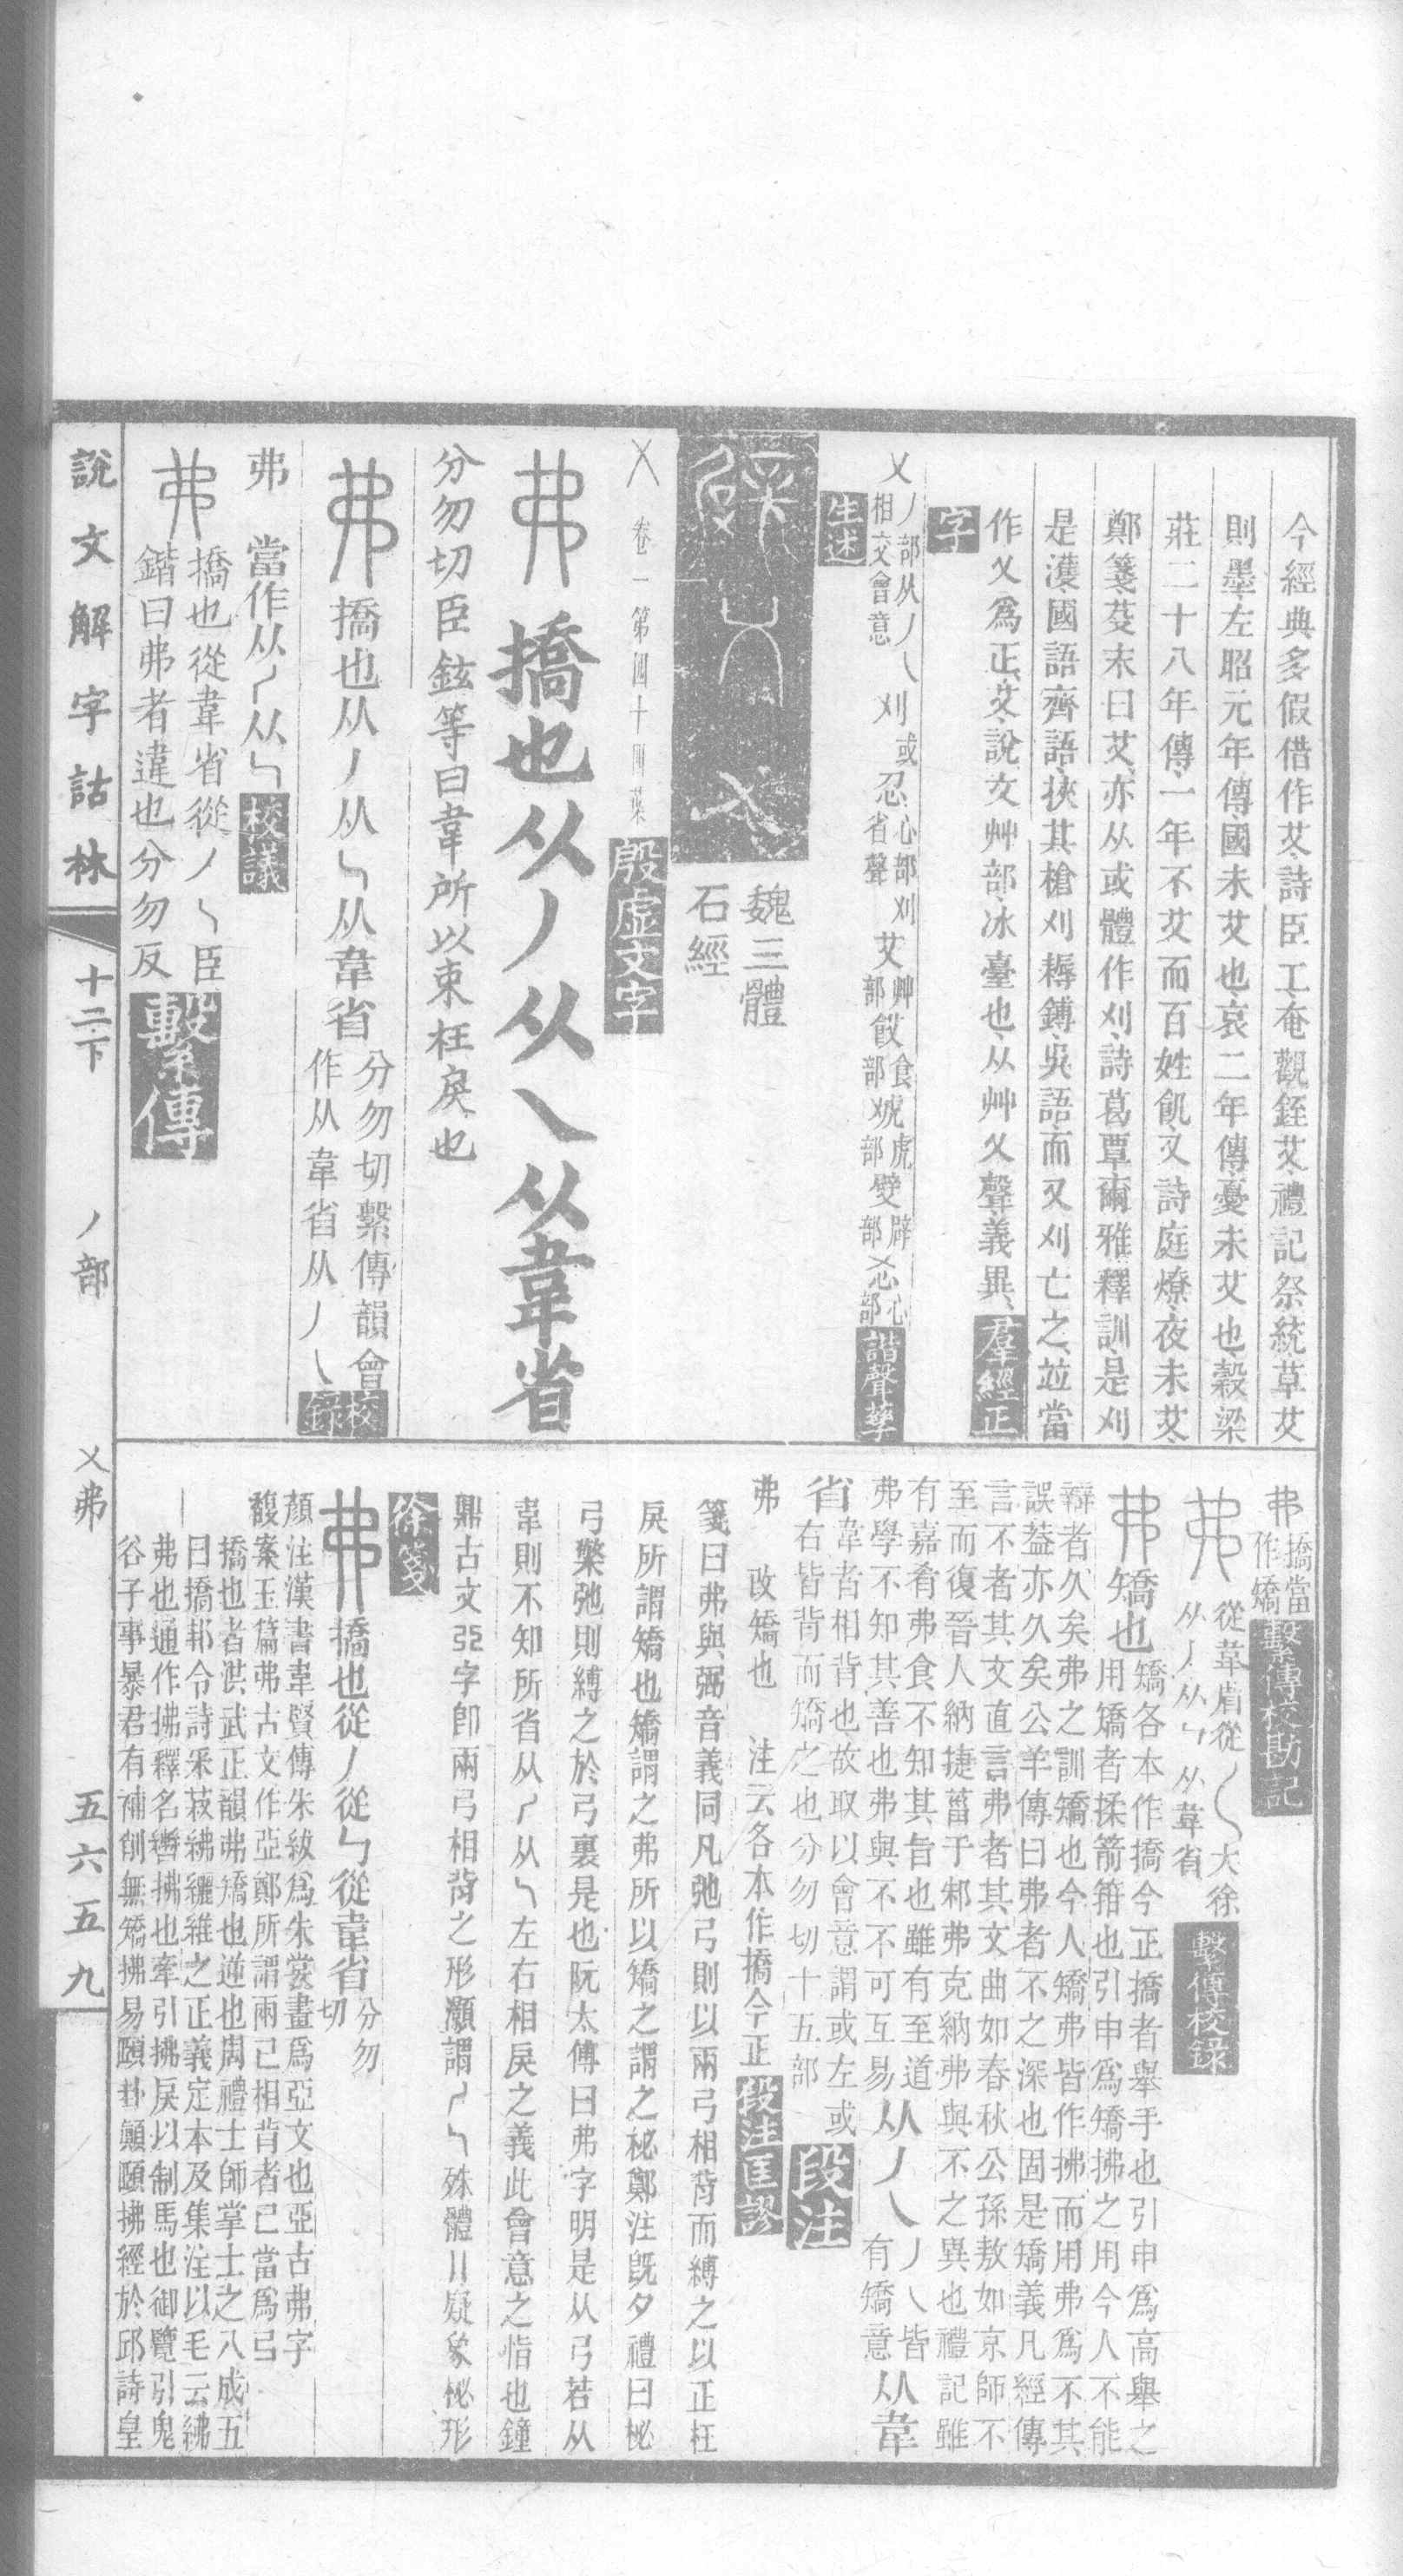 今經典多假借作艾、詩臣工、奄觀銍艾、禮記祭統、草艾
則墨、左昭元年傳、國未艾也、哀二年傳、憂未艾也、穀梁
莊二十八年傳、一年不艾而百姓飢、又詩庭燎、夜未艾、
鄭箋、芟末曰艾、亦从或體作刈、詩葛覃、爾雅釋訓、是刈
是濩、國語齊語、挾其槍刈耨鎛、吳語、而又刈亡之、竝當
作乂爲正、艾、說文艸部、冰臺也、从艸乂聲、義異、羣經正
字
乂 丿部从丿乀相交會意 刈或 忍心部刈省聲 艾艸部 餀食部 㺉虎部 嬖辟部 忥心部 諧聲孳
生述
魏三體
石經
乂 卷一第四十四葉 殷虛文字
弗 撟也从丿从乀从韋省
分勿切臣鉉等曰韋所以束枉戾也
弗 撟也从丿从乁从韋省 分勿切繫傳韻會作从韋省从丿乀 校錄
弗 當作从 从 校議
弗 撟也從韋省從丿乀臣鍇曰弗者違也分勿反 繫傳
弗 撟當作矯 繫傳校勘記
弗 從韋省從丿乀大徐从丿从乁从韋省 繫傳校錄
弗 矯也 矯各本作撟今正撟者舉手也引申爲高舉之
用矯者揉箭箝也引申爲矯拂之用今人不能
辯者久矣弗之訓矯也今人矯弗皆作拂而用弗爲不其
誤葢亦久矣公羊傳曰弗者不之深也固是矯義凡經傳
言不者其文直言弗者其文曲如春秋公孫敖如京師不
至而復晉人納捷菑于邾弗克納弗與不之異也禮記雖
有嘉肴弗食不知其旨也雖有至道
弗學不知其善也弗與不不可互易 从丿乀 丿乀皆有矯意 从韋
省 韋者相背也故取以會意謂或左或
右皆背而矯之也分勿切十五部 段注
弗 改矯也 注云各本作撟今正 段注匡謬
箋曰弗與弼音義同凡弛弓則以兩弓相背而縛之以正枉
戾所謂矯也矯謂之弗所以矯之謂之柲鄭注旣夕禮曰柲
弓檠弛則縛之於弓裏是也阮太傅曰弗字明是从弓若从
韋則不知所省从 从 左右相戾之義此會意之恉也鐘
鼎古文 字卽兩弓相背之形灝謂 殊體 疑象柲形
徐箋
弗 撟也從丿從乁從韋省 分勿切
顏注漢書韋賢傳朱紱爲朱裳畫爲亞文也亞古弗字
馥案玉篇弗古文作亞鄭所謂兩己相背者己當爲弓
撟也者洪武正韻弗矯也逆也周禮士師掌士之八成五
曰撟邦令詩采菽紼纚維之正義定本及集注以毛云紼
弗也通作拂釋名轡拂也牽引拂戾以制馬也御覽引鬼
谷子事暴君有補削無矯拂易頤卦顚頤拂經於邱詩皇
說文解字詁林 十二下 丿部 乂弗 五六五九